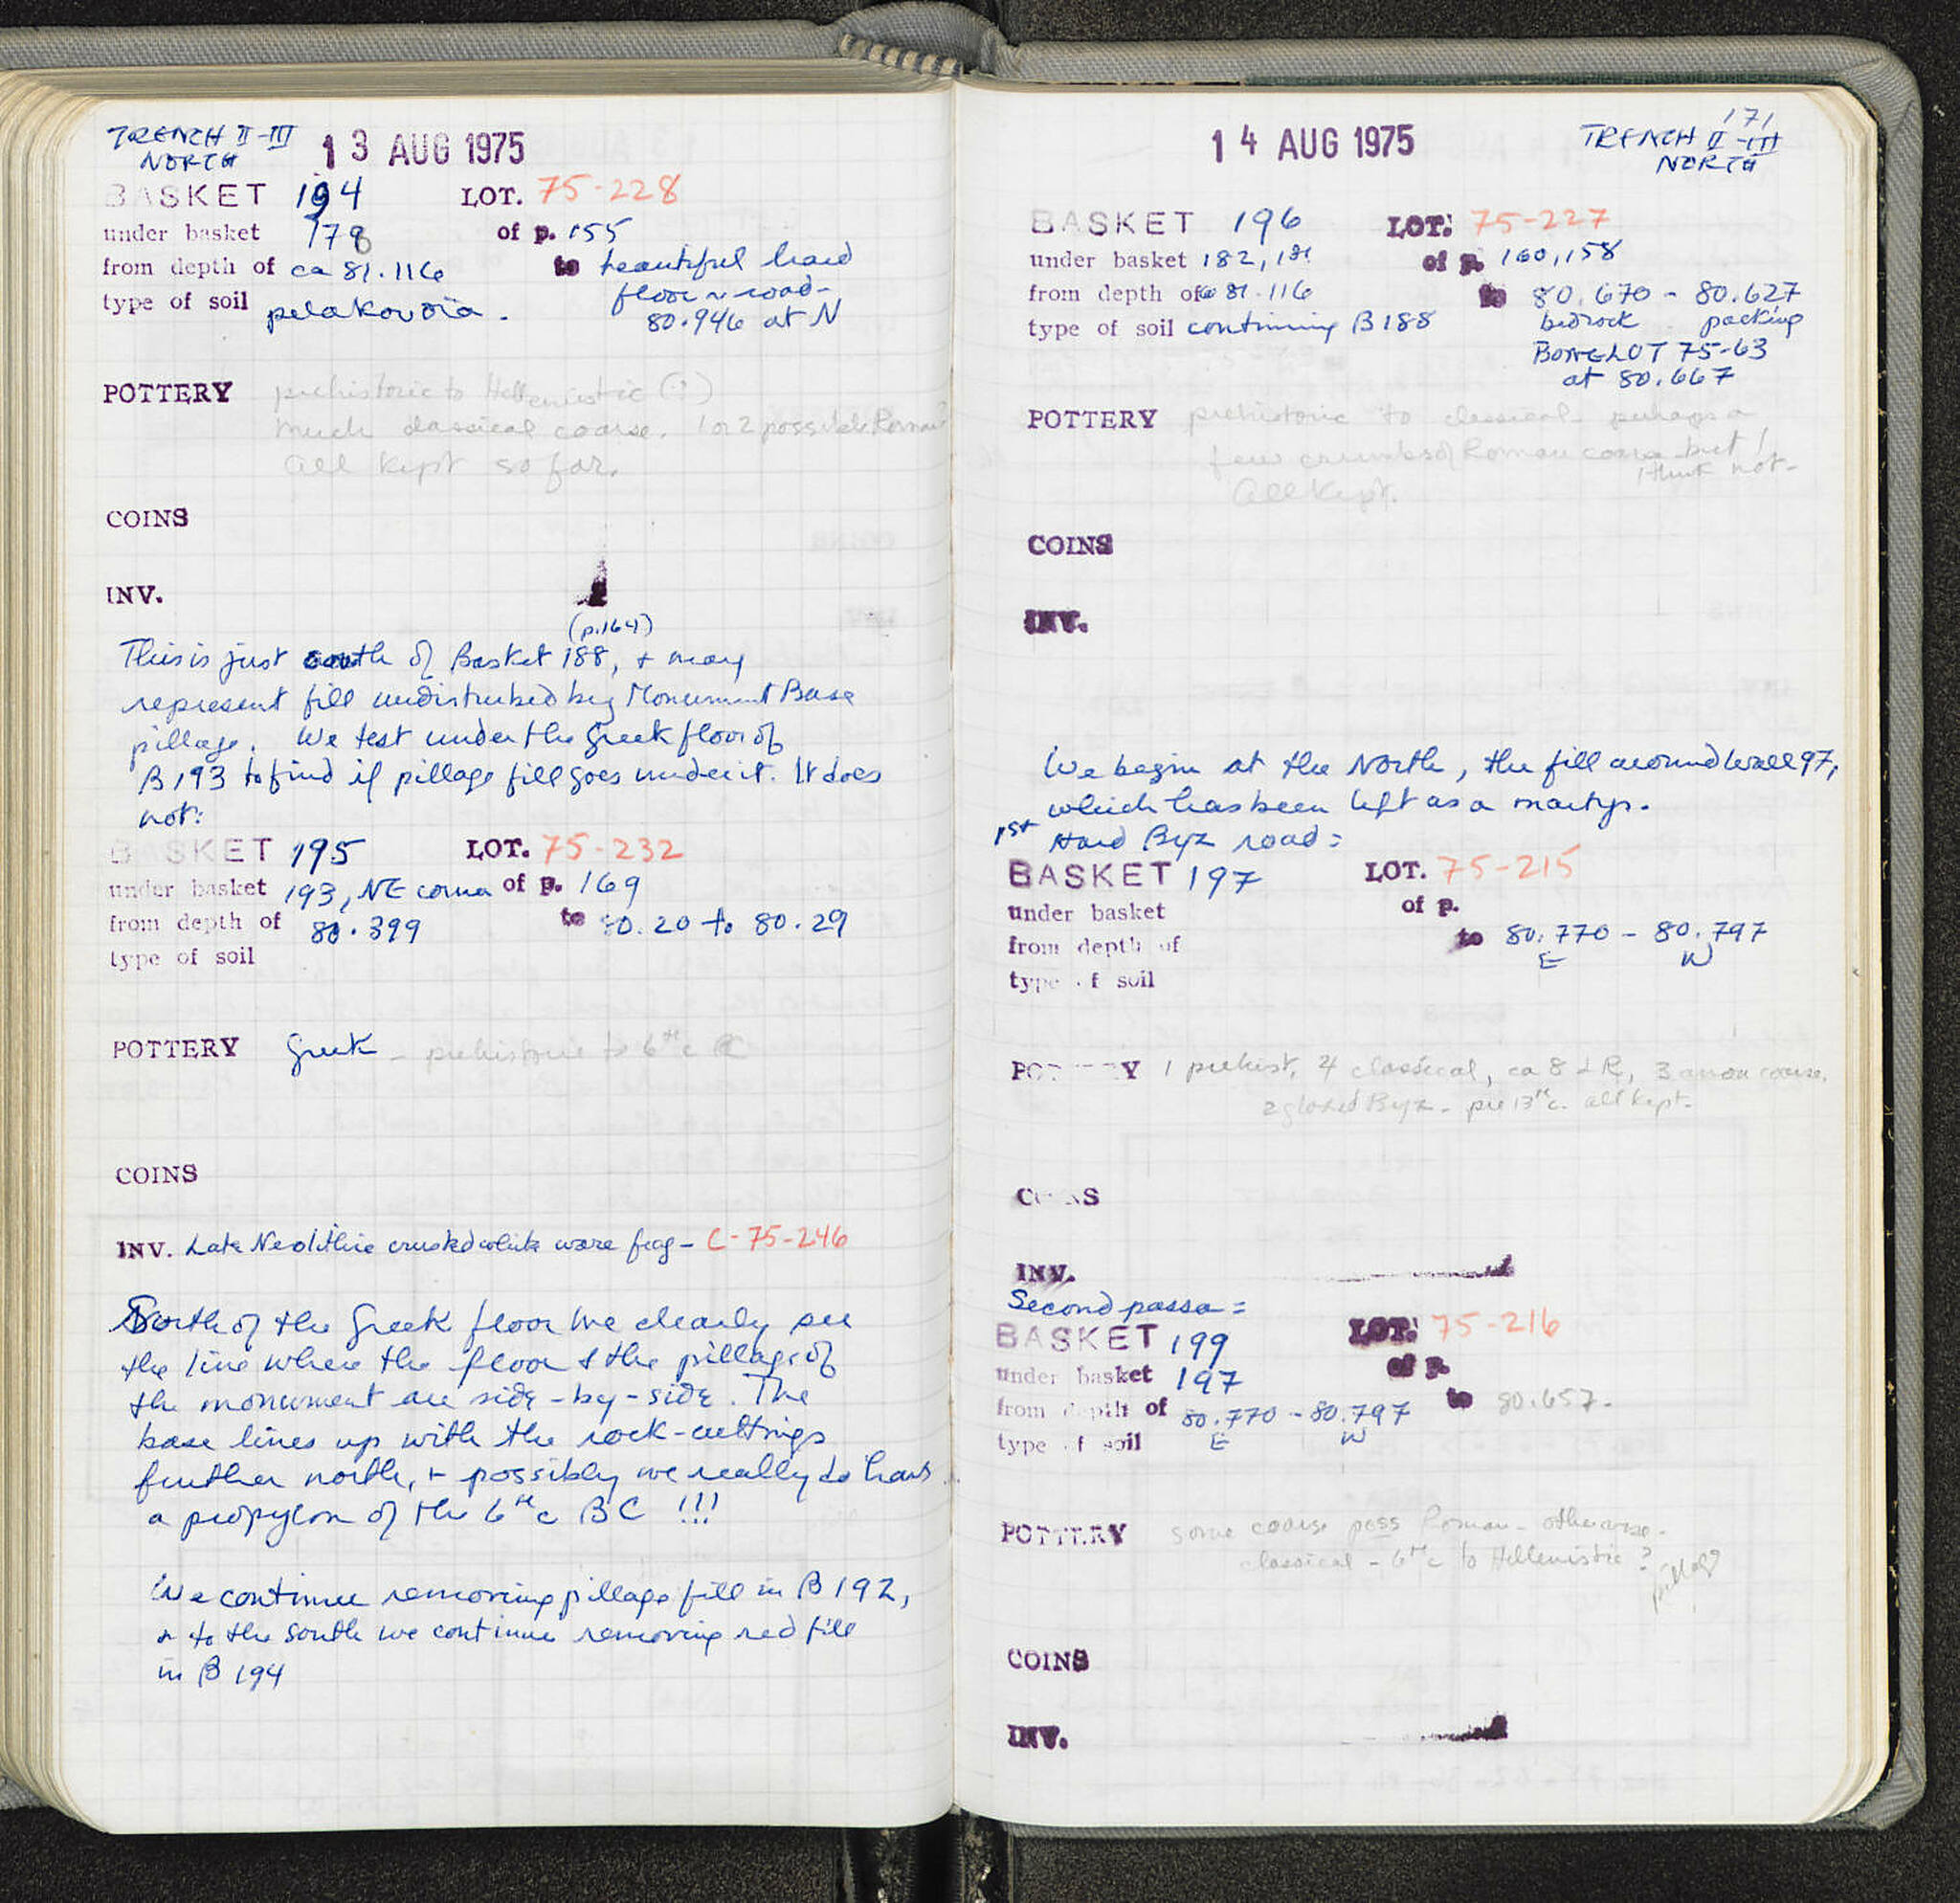 TRENCH II-III
NORTH
13 AUG 1975
BASKET 194 LOT. 75-228
under basket 178 of p. 155
from depth of ca 81.116 to beautiful hard
floor road-
80.946 at N
type of soil
POTTERY prehistoric to Hellenistic (?)
much classical coarse. 1 or 2 possible Roman?
all kept so far.
COINS
INV.
(p.164)
This is just south of Basket 188, + may
represent fill undisturbed by Monument Base
pillage. We test under the Greek floor of
B 193 to find if pillage fill goes under it. It does
not:
BASKET 195 LOT. 75-232
under basket 193, NE corner of p. 169
from depth of 80.399 to 80.20 to 80.29
type of soil
POTTERY Greek - prehistoric to 6th c BC
COINS
INV. Late Neolithic crusted white ware frag - C-75-246
South of the Greek floor we clearly see
the line where the floor & the pillage of
the monument are side-by-side. The
base lines up with the rock-cuttings
further north, + possibly we really do have
a propylon of the 6th c BC !!!
We continue removing pillage fill in B 192,
+ to the south we continue removing red fill
in B 194
171
14 AUG 1975
TRENCH II-III
NORTH
BASKET 196 LOT: 75-227
under basket 182, 181 of p. 160, 158
from depth of 81.116 to 80.670 - 80.627
bedrock packing
type of soil continuing B 188
BONE LOT 75-63
at 80.667
POTTERY prehistoric to classical - perhaps a
few crumbs of Roman coarse but I
think not -
All kept.
COINS
INV.
We begin at the North, the fill around wall 97,
which has been left as a martyr.
1st Hard Byz road:
BASKET 197 LOT. 75-215
under basket of p.
from depth of to 80.770 - 80.797
E W
type of soil
POTTERY 1 prehist, 4 classical, ca 8 LR, 3 anon coarse,
2 glazed Byz - pre 13th c. all kept.
COINS
INV.
Second passa =
BASKET 199 LOT: 75-216
under basket 197 of p.
from depth of 80.770 - 80.797 to 80.657.
type of soil E W
POTTERY some coarse poss Roman - otherwise -
classical - 6th c to Hellenistic?
pillage?
COINS
INV.